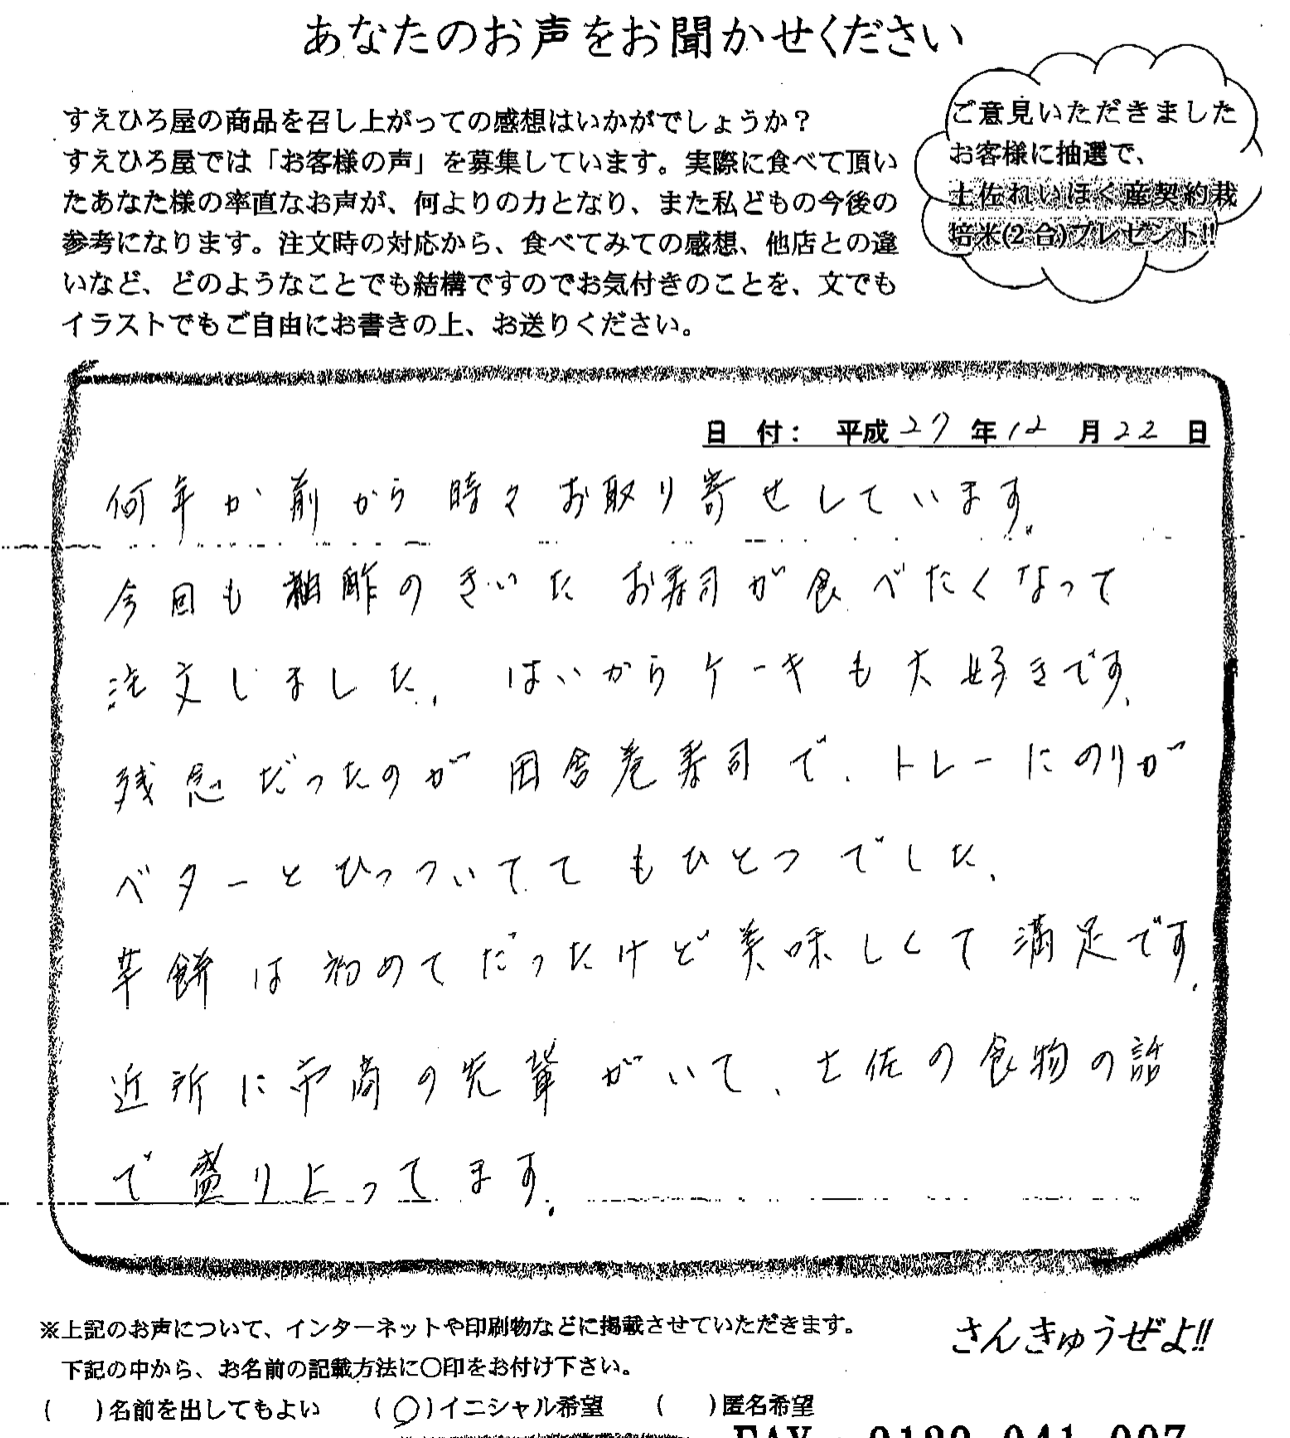 あなたのお声をお聞かせください
すえひろ屋の商品を召し上がっての感想はいかがでしょうか？
すえひろ屋では「お客様の声」を募集しています。実際に食べて頂い
たあなた様の率直なお声が、何よりの力となり、また私どもの今後の
参考になります。注文時の対応から、食べてみての感想、他店との違
いなど、どのようなことでも結構ですのでお気付きのことを、文でも
イラストでもご自由にお書きの上、お送りください。
ご意見いただきました
お客様に抽選で、
土佐れいほく産契約栽
培米(2合)プレゼント!!
日 付： 平成 27 年 12 月 22 日
何年か前から時々お取り寄せしています。
今回も柚酢のきいたお寿司が食べたくなって
注文しました。はいからケーキも大好きです。
残念だったのが田舎巻寿司で、トレーにのりが
ベターとひっついてて もひとつでした。
芋餅は初めてだったけど美味しくて満足です。
近所に市商の先輩がいて、土佐の食物の話
で盛り上ってます。
※上記のお声について、インターネットや印刷物などに掲載させていただきます。
下記の中から、お名前の記載方法に〇印をお付け下さい。
さんきゅうぜよ!!
(　)名前を出してもよい　(〇)イニシャル希望　(　)匿名希望
FAX：0120-041-007